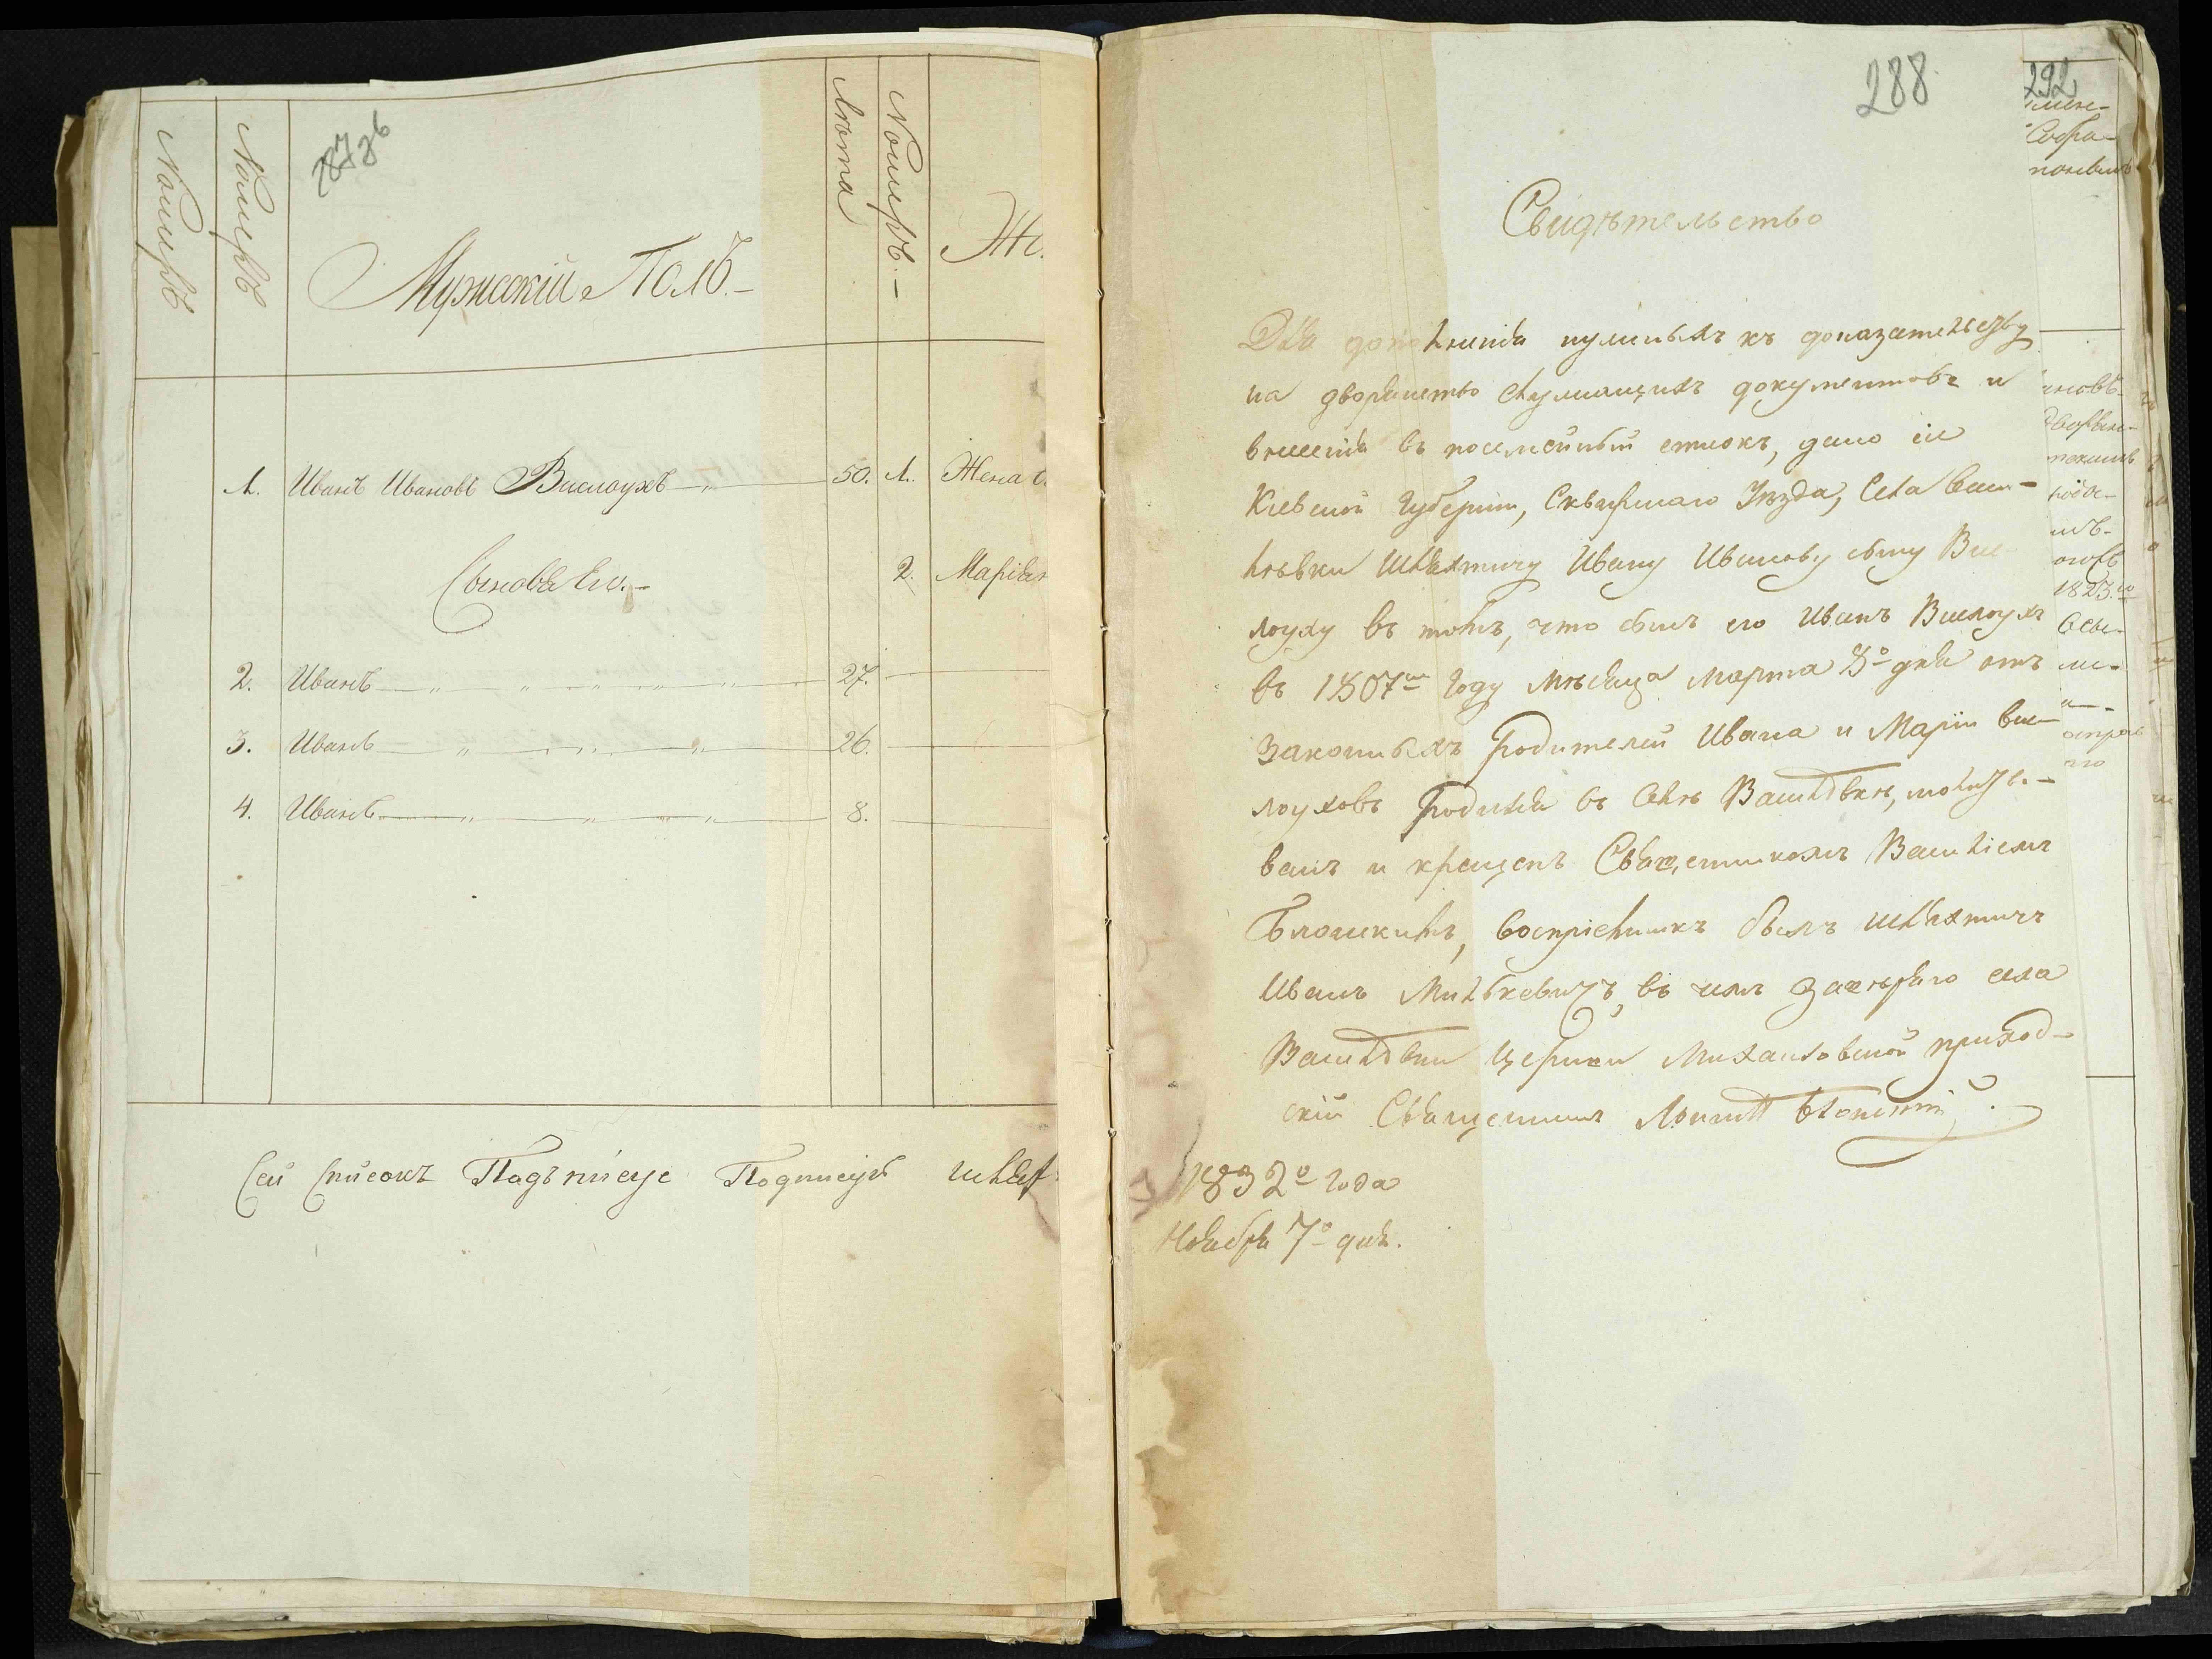 287 об
Номеръ
Номеръ
Мужескій Полъ.-
Лѣта
Номеръ.-
Же
1. Иванъ Ивановъ Вислоухъ 50. 1. Жена
Сыновья Его.- 2. Маріян
2. Иванъ 27.
3. Иванъ 26.
4. Иванъ 8.
Сей Списокъ Подписуе Подписуе шлях
288
292
Свидѣтельство
Для дополненія нужныхъ къ доказательству
на дворянство служащихъ документовъ и
внесенія въ посемейный списокъ, дано сіе
Кіевской Губерніи, Сквирскаго Уѣзда, Села Васи-
лѣвки Шляхтичу Ивану Иванову сыну Вис-
лоуху въ томъ, что сынъ его Иванъ Вислоухъ
въ 1807м Году Мѣсяца Марта 8го дня отъ
законныхъ Родителей Ивана и Маріи Вис-
лоуховъ Родился въ Селѣ Василѣвкѣ, молитво-
ванъ и крещенъ Священникомъ Василіемъ
воспріемникъ былъ шляхтичъ
Иванъ Милькевичъ, въ чемъ завѣряю села
Василѣвки Церкви Михайловской приход-
скій Священникъ
1832го года
Ноября 7го дня.
мен-
Собра-
новъ-
Дворян-
1823.го